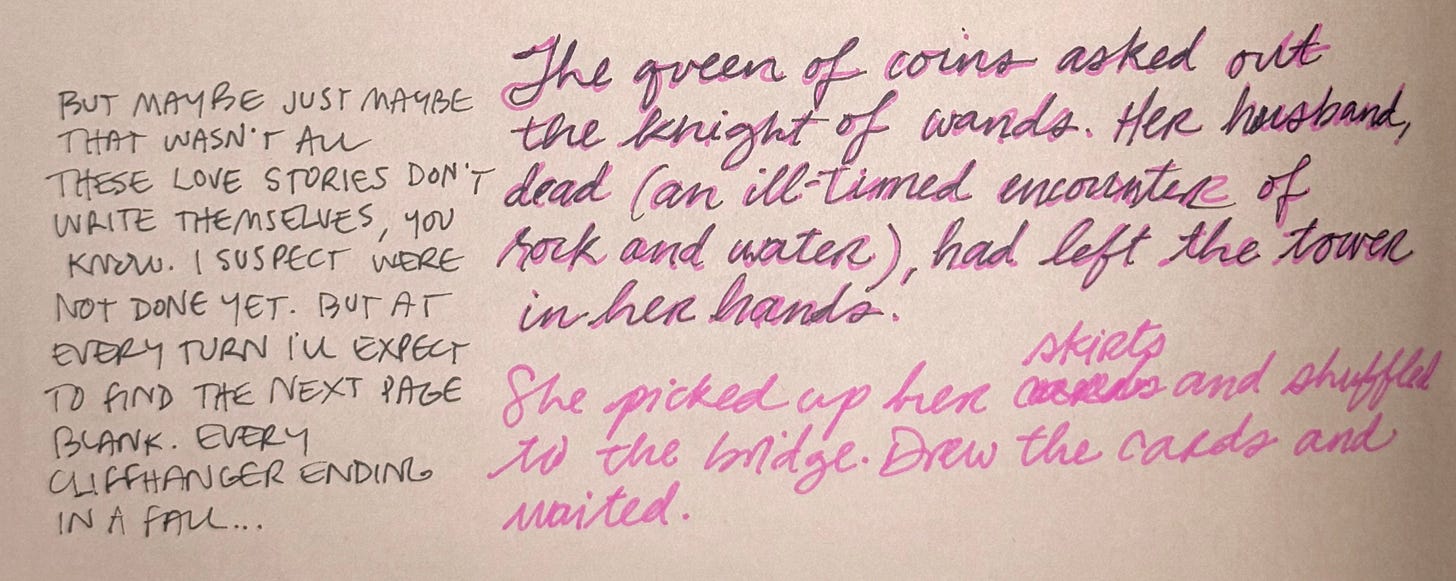 BUT MAYBE JUST MAYBE
THAT WASN'T ALL
THESE LOVE STORIES DON'T
WRITE THEMSELVES, YOU
KNOW. I SUSPECT WERE
NOT DONE YET. BUT AT
EVERY TURN I'LL EXPECT
TO FIND THE NEXT PAGE
BLANK. EVERY
CLIFFHANGER ENDING
IN A FALL...
The queen of coins asked out
the knight of wands. Her husband,
dead (an ill-timed encounter of
rock and water), had left the tower
in her hands.
skirts
She picked up her and shuffled
to the bridge. Drew the cards and
waited.